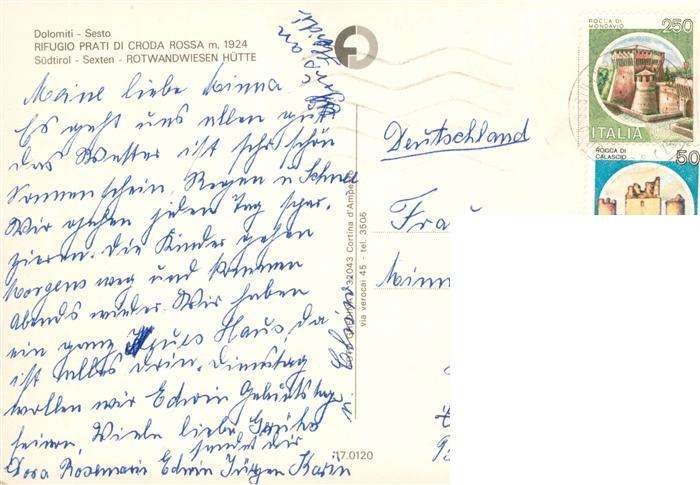 Dolomiti - Sesto
RIFUGIO PRATI DI CRODA ROSSA m. 1924
Südtirol - Sexten - ROTWANDWIESEN HÜTTE
Meine liebe Minna
Es geht uns allen gut
das Wetter ist sehr schön
Sonnenschein, Regen u Schnee
Wir gehen jeden Tag spa-
zieren. Die Kinder gehen
Morgens weg und kommen
Abends wieder. Wir haben
ein ganz Haus, da
ist alles drin. Dienstag
wollen wir Edwin Geburtstag
feiern. Viele liebe Grüße
sendet dir
Dora Rosemarie Edwin Jürgen Karin
u.
32043 Cortina d'Ampe
via verocai 45 - tel. 3506
17.0120
Deutschland
Frau
Minn
ROCCA DI
MONDAVIO
250
ITALIA
ROCCA DI
CALASCIO
50